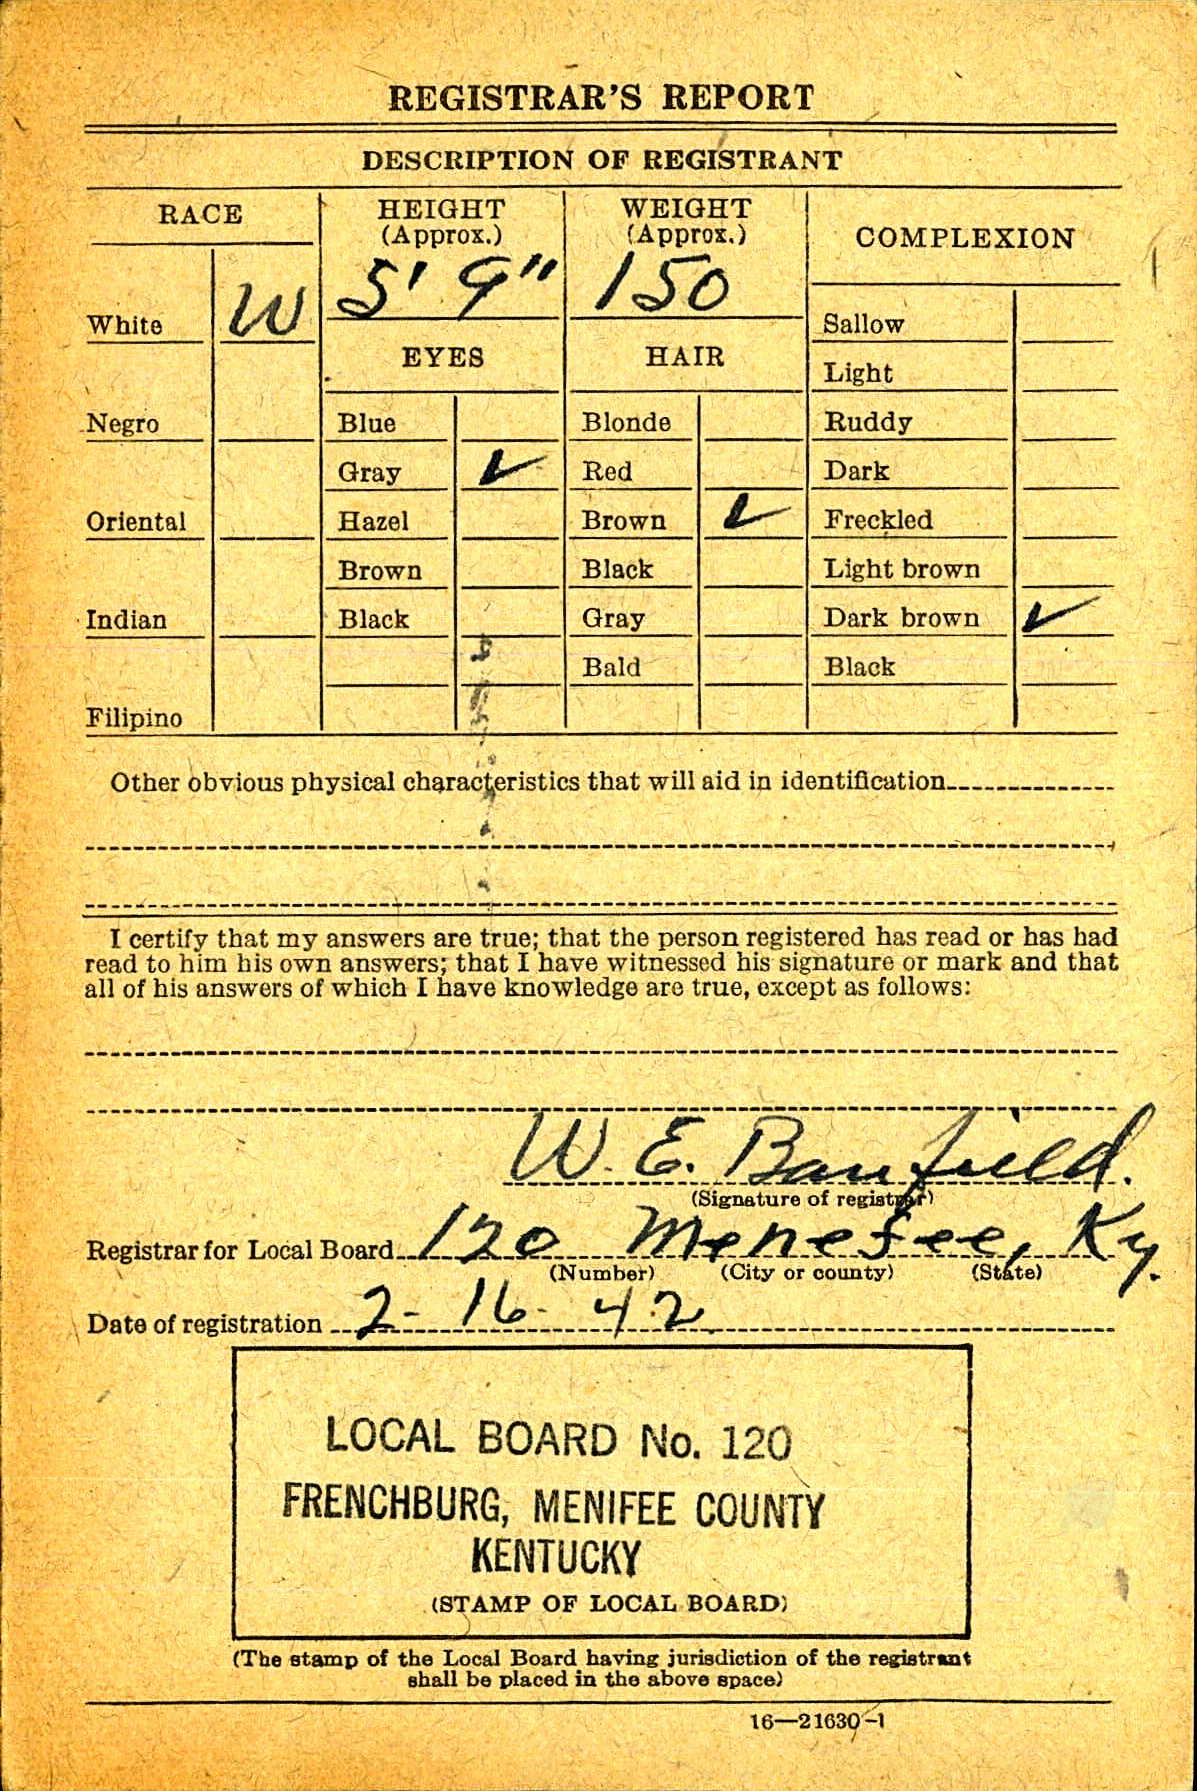 REGISTRAR'S REPORT
DESCRIPTION OF REGISTRANT
RACE
HEIGHT
(Approx.)
WEIGHT
(Approx.)
COMPLEXION
5' 9"
150
White W
EYES
HAIR
Sallow
Light
Negro
Blue
Blonde
Ruddy
Gray ✓
Red
Dark
Oriental
Hazel
Brown ✓
Freckled
Brown
Black
Light brown
Indian
Black
Gray
Dark brown ✓
Bald
Black
Filipino
Other obvious physical characteristics that will aid in identification
I certify that my answers are true; that the person registered has read or has had
read to him his own answers; that I have witnessed his signature or mark and that
all of his answers of which I have knowledge are true, except as follows:
W. E. Banfield.
(Signature of registrar)
Registrar for Local Board 120 Menefee, Ky.
(Number) (City or county) (State)
Date of registration 2-16-42
LOCAL BOARD No. 120
FRENCHBURG, MENIFEE COUNTY
KENTUCKY
(STAMP OF LOCAL BOARD)
(The stamp of the Local Board having jurisdiction of the registrant
shall be placed in the above space)
16—21630-1